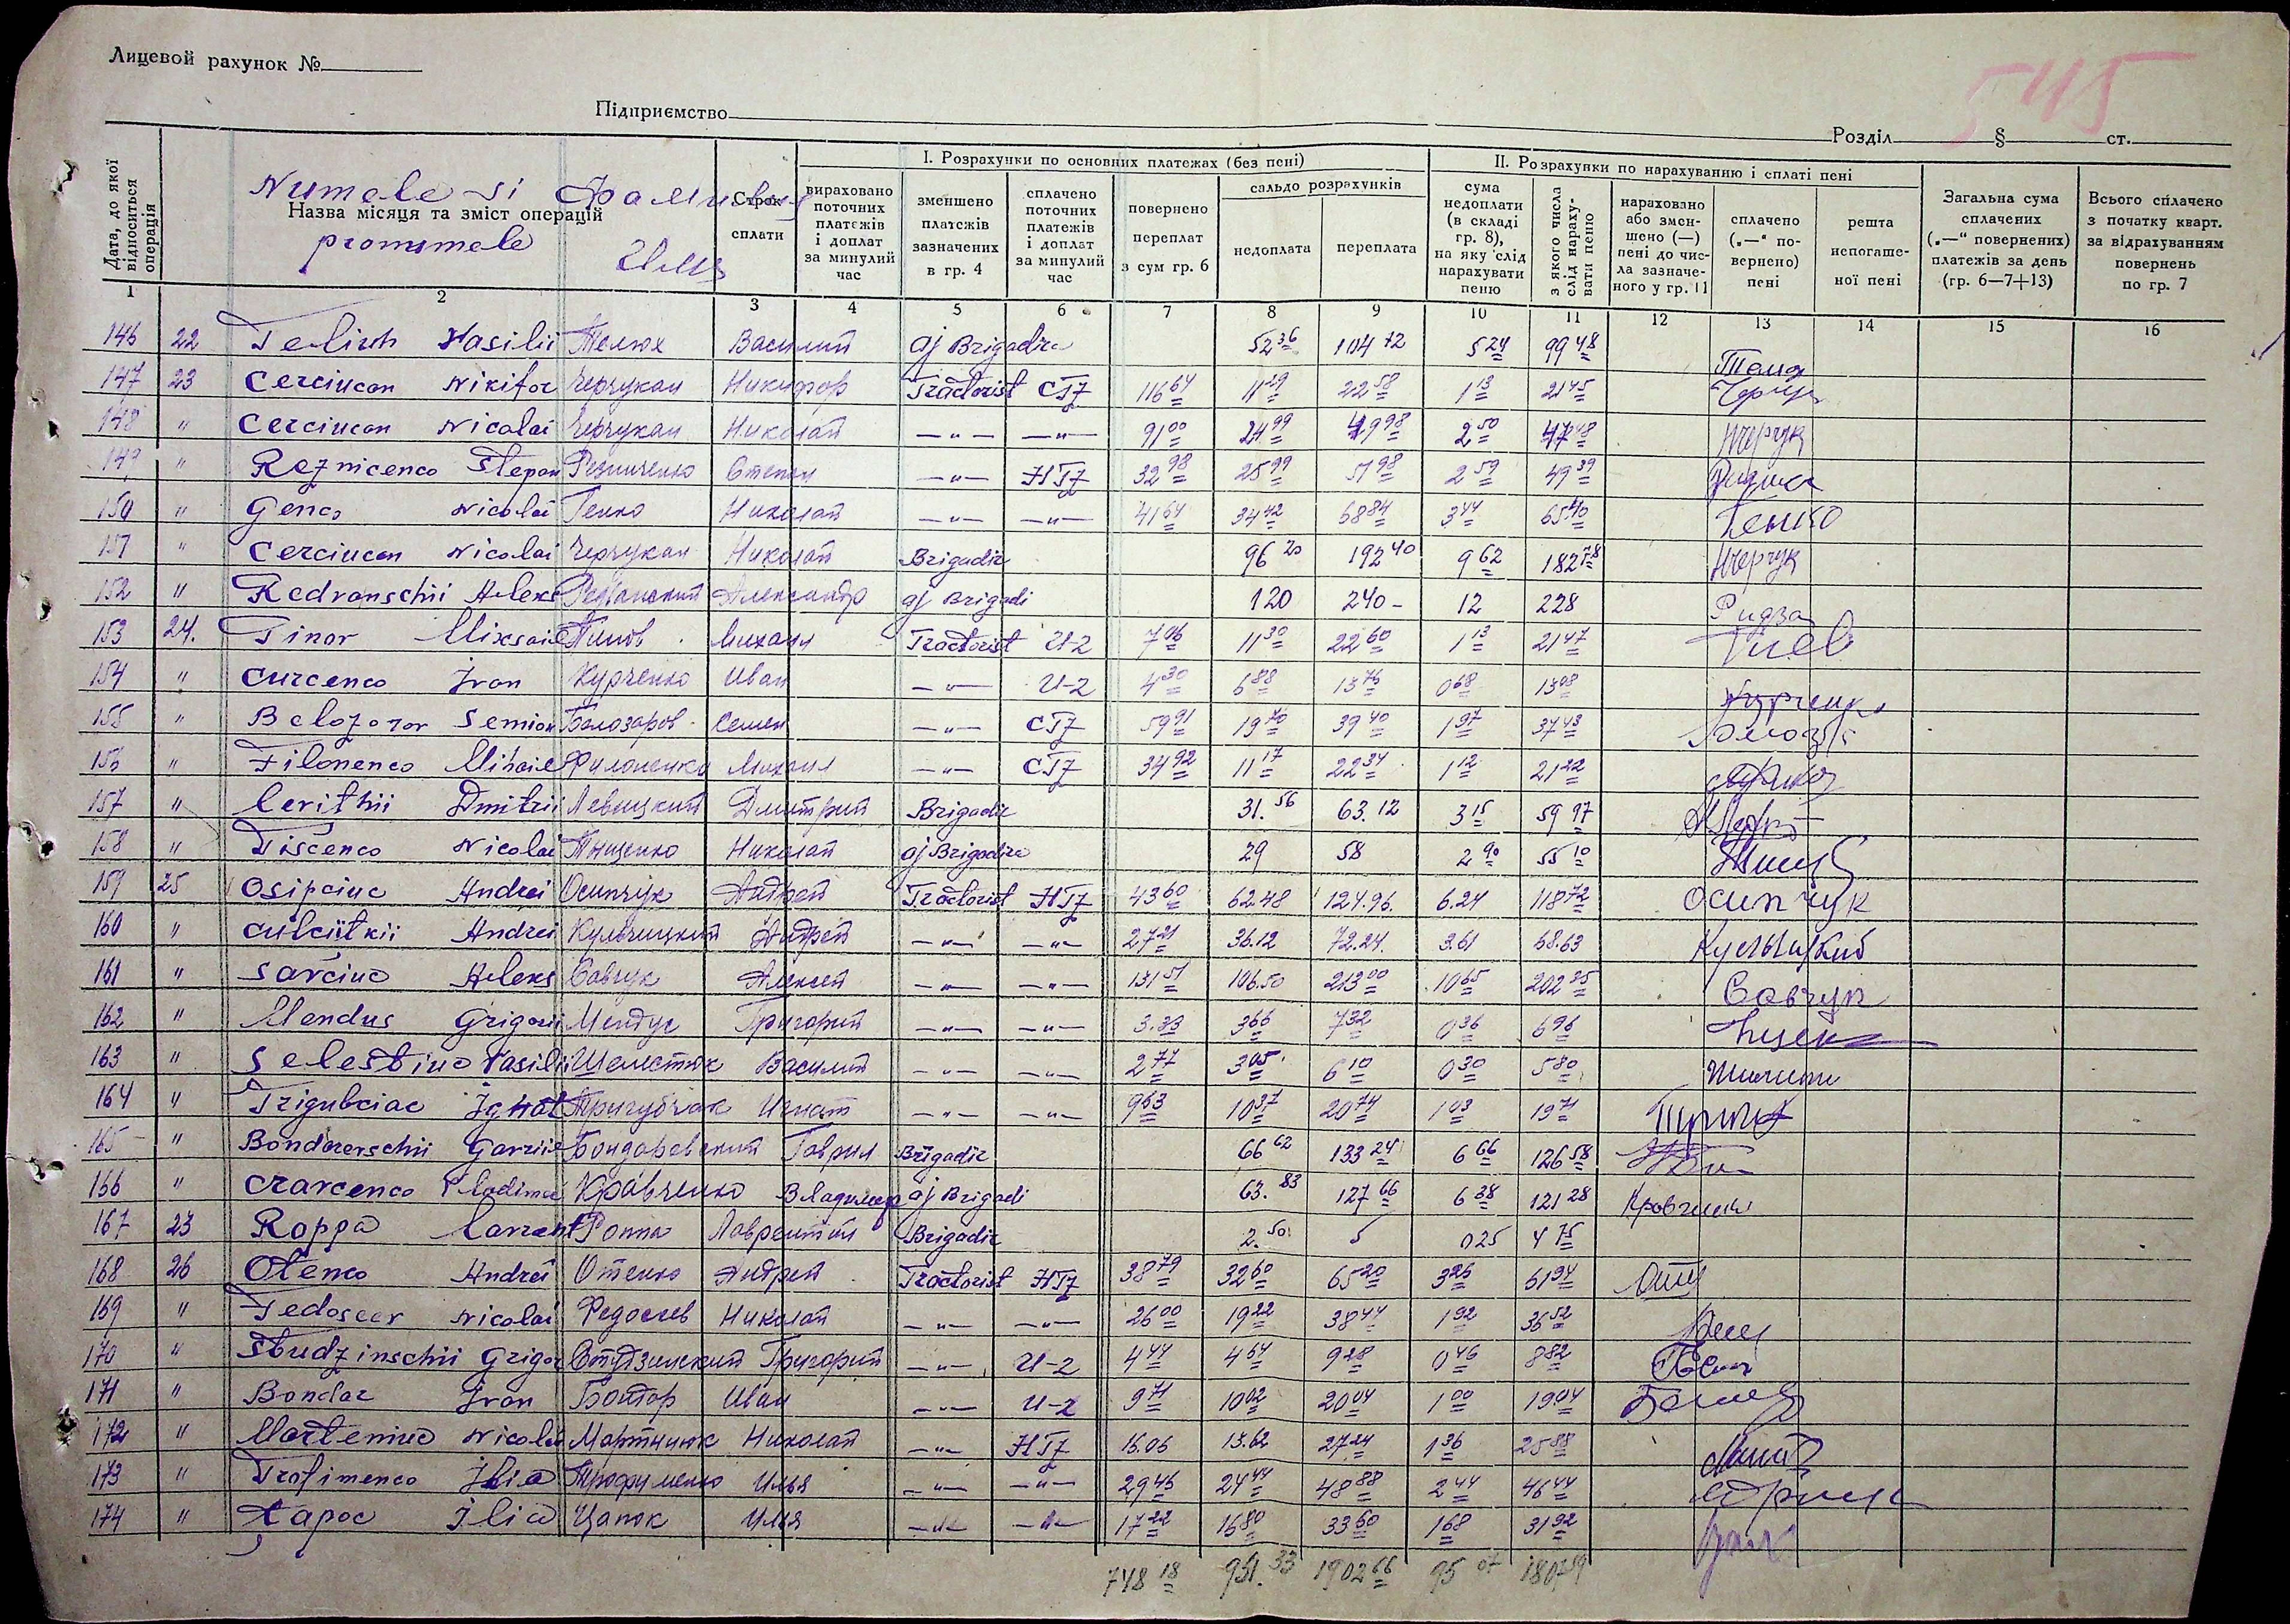 Лицевой рахунок №
545
Підприємство
Розділ § ст.
Дата, до якої відноситься операція
Numele si Фамилия
Назва місяця та зміст операцій
pronumele Имя
Строк сплати
I. Розрахунки по основних платежах (без пені)
вираховано поточних платежів і доплат за минулий час
зменшено платежів зазначених в гр. 4
сплачено поточних платежів і доплат за минулий час
повернено переплат з сум гр. 6
сальдо розрахунків
недоплата
переплата
II. Розрахунки по нарахуванню і сплаті пені
сума недоплати (в складі гр. 8), на яку слід нарахувати пеню
з якого числа слід нараху-вати пеню
нараховано або змен-шено (—) пені до чис-ла зазначе-ного у гр. 11
сплачено („—“ по-вернено) пені
решта непогаше-ної пені
Загальна сума сплачених („—“ повернених) платежів за день (гр. 6—7+13)
Всього сплачено з початку кварт. за відрахуванням повернень по гр. 7
1 2 3 4 5 6 7 8 9 10 11 12 13 14 15 16
146 22 Teliuh Vasilii Телюх Василий aj Brigadir 52 36 104 72 5 24 99 48
147 23 Cerciucan Nikifor Черчукан Никифор Tractorist СТЗ 116 64 11 29 22 58 1 13 21 45
148 " Cerciucan Nicolai Черчукан Николай —"— —"— 91 00 24 99 49 98 2 50 47 48
149 " Reznicenco Stepan Резниченко Степан —"— НТЗ 32 98 25 99 51 98 2 59 49 39
150 " Genco Nicolai Генко Николай —"— —"— 41 64 34 42 68 84 3 44 65 40 Генко
151 " Cerciucan Nicolai Черчукан Николай Brigadir 96 20 192 40 9 62 182 78
152 " Redvanschii Aleks Редванский Александр aj Brigadi 120 240 - 12 228
153 24. Tinov Mixsail Тинов Михаил Tractorist У-2 7 06 11 30 22 60 1 13 21 47
154 " Curcenco Ivan Курченко Иван —"— У-2 4 30 6 88 13 76 0 68 13 08
155 " Belozorov Semion Белозоров Семен —"— СТЗ 59 91 19 70 39 40 1 97 37 43
156 " Filonenco Mihail Филоненко Михаил —"— СТЗ 34 92 11 17 22 34 1 12 21 22
157 " Levithii Dmitrii Левицкий Дмитрий Brigadir 31. 56 63. 12 3 15 59 97
158 " Tiscenco Nicolai Тищенко Николай aj Brigadir 29 58 2 90 55 10
159 25 Osipciuc Andrei Осипчук Андрей Tractorist НТЗ 43 60 62.48 124.96. 6.24 118 72 Осипчук
160 " Culciitkii Andrei Кульчицкий Андрей —"— —"— 27 21 36.12 72.24. 3.61 68.63
161 " Savciuc Aleks Савчук Алексей —"— —"— 131 51 106.50 213 00 10 65 202 35 Савчук
162 " Mendus Grigorii Мендус Григорий —"— —"— 3.33 3 66 7 32 0 36 6 96
163 " Selestiuc Vasilii Шелестюк Василий —"— —"— 2 77 3 05 6 10 0 30 5 80
164 " Trigubciac Ignat Тригубчак Игнат —"— —"— 9 63 10 37 20 74 1 03 19 71
165 " Bondarevschii Gavriil Бондаревский Гаврил Brigadir 66 62 133 24 6 66 126 58
166 " Cravcenco Vladimir Кравченко Владимир aj Brigadi 63. 83 127 66 6 38 121 28
167 23 Roppa Lavrent Роппа Лаврентий Brigadir 2. 50 5 0 25 4 75
168 26 Otenco Andrei Отенко Андрей Tractorist НТЗ 38 79 32 60 65 20 3 26 61 94
169 " Fedoseev Nicolai Федосеев Николай —"— —"— 26 00 19 22 38 44 1 92 36 52
170 " Studzinschii Grigor Студзинский Григорий —"— У-2 4 44 4 64 9 28 0 46 8 82
171 " Bondar Ivan Бондар Иван —"— У-2 9 71 10 02 20 04 1 00 19 04
172 " Marteniuc Nicolai Мартинюк Николай —"— НТЗ 16.06 13.62 27 24 1 36 25 88
173 " Trofimenco Ilia Трофименко Илья —"— —"— 29 46 24 44 48 88 2 44 46 44
174 " Țapoc Ilia Цапок Илья —"— —"— 17 22 16 80 33 60 1 68 31 92
748 18 951. 33 1902 66 95 07 1807 59